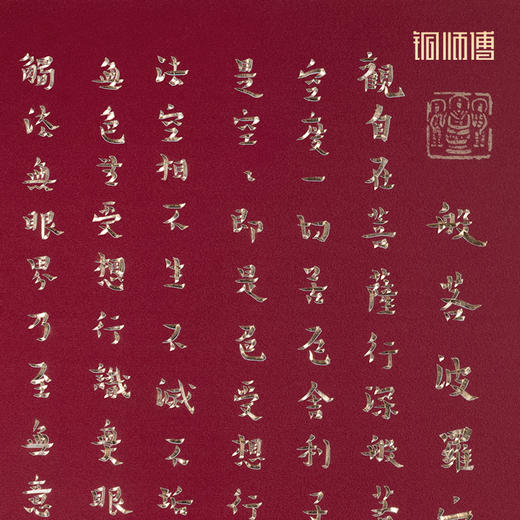 铜师傅
般若波羅
觀自在菩薩行深般若
空度一切苦厄舍利子
是空〻即是色受想行
法空相不生不滅不垢
無色無受想行識無眼
觸法無眼界乃至無意